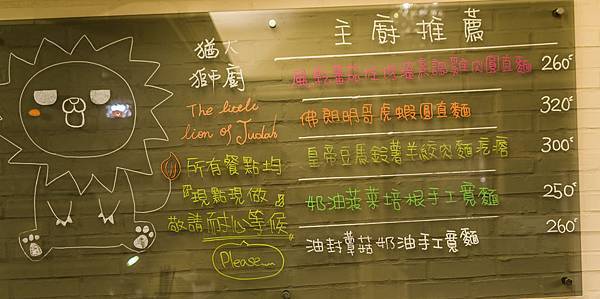 猶大
獅廚
The little
lion of Judah
所有餐點均
『現點現做』
敬請耐心等候
Please
主廚推薦
雞肉圓直麵 260元
佛朗明哥虎蝦圓直麵 320元
皇帝豆馬鈴薯羊絞肉麵疙瘩 300元
奶油菠菜培根手工寬麵 250元
油封蘑菇奶油手工寬麵 260元